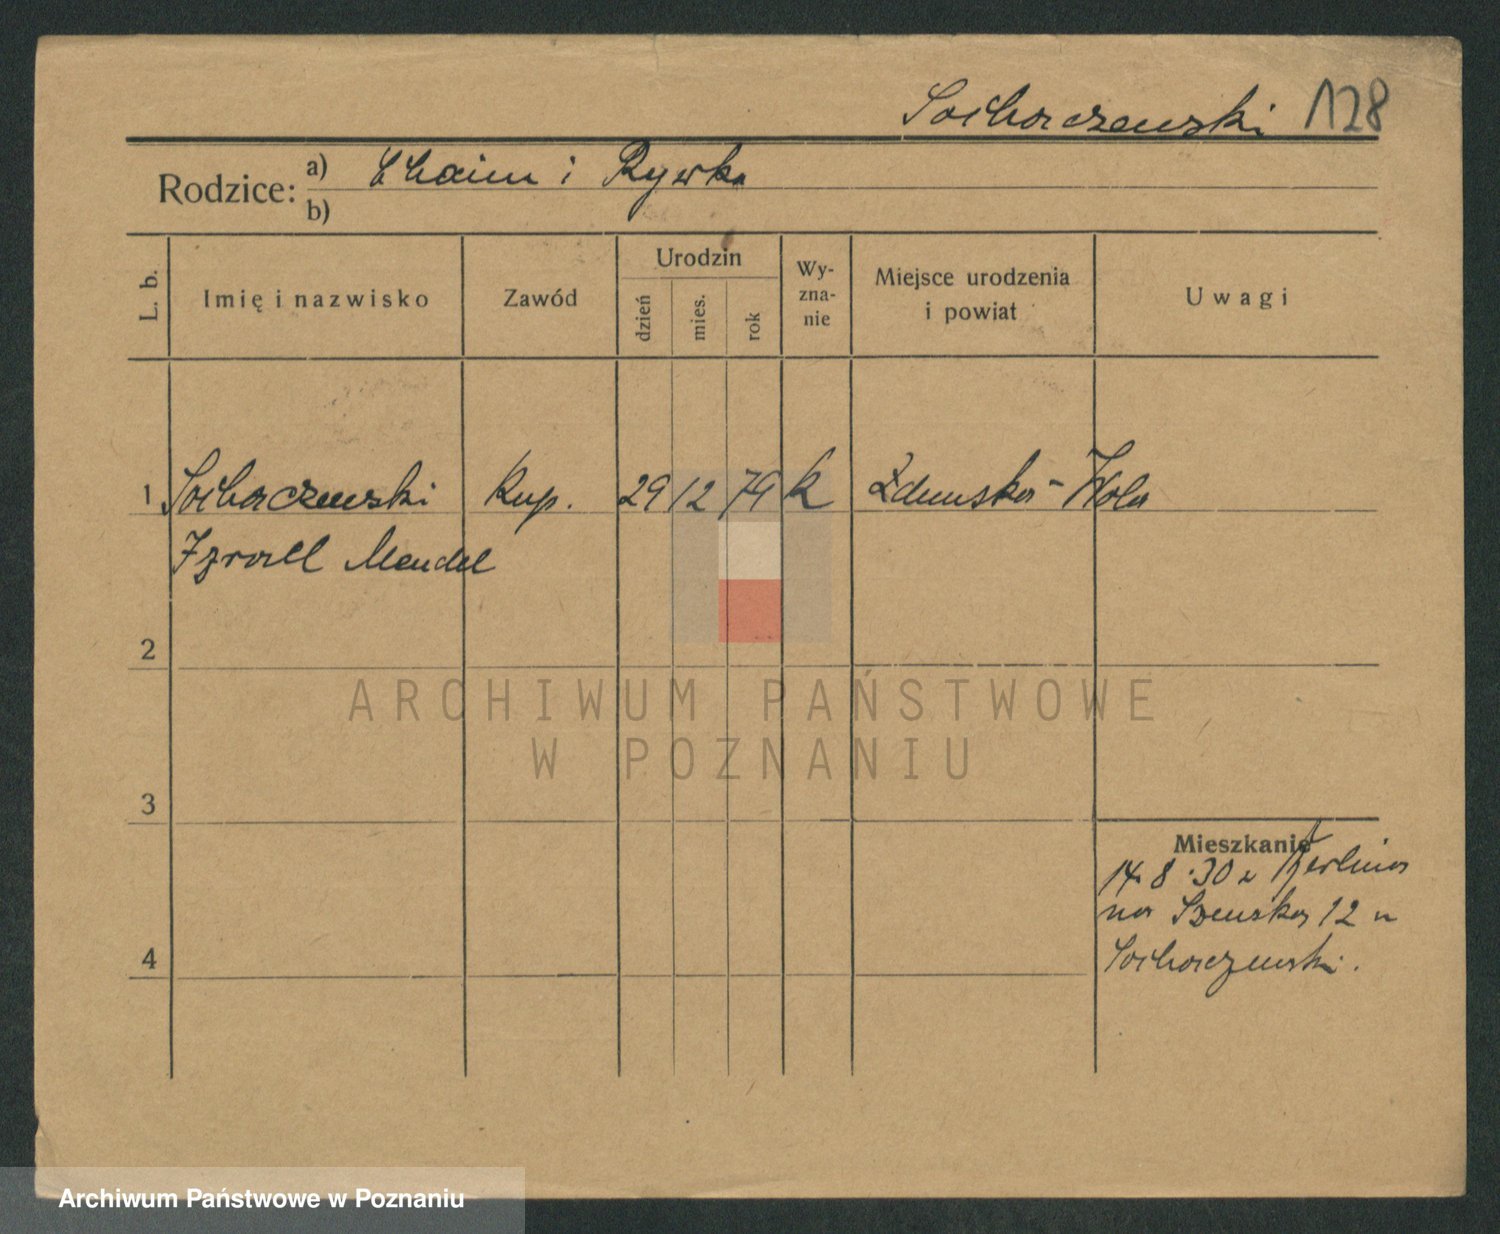 Sochaczewski 128
Rodzice: a) Chaim i Rywka
b)
L. b. Imię i nazwisko Zawód Urodzin dzień mies. rok Wy-zna-nie Miejsce urodzenia i powiat Uwagi
1 Sochaczewski Kup. 29 12 79 Zduńska-Wola
Izrael Mendel
2
ARCHIWUM PAŃSTWOWE
W POZNANIU
3
Mieszkanie
14.8.30 z Berlina
na 12 u
Sochaczewski.
4
Archiwum Państwowe w Poznaniu